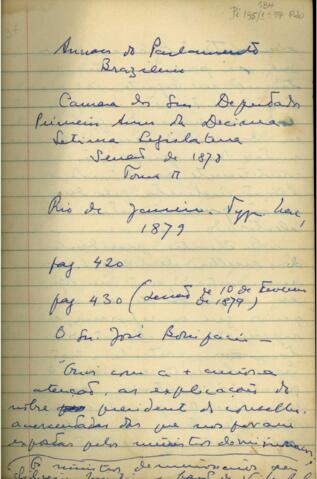 184
Annaes do Parlamento
Brazileiro
Camara dos Snrs. Deputados
Primeiro Anno da Decima
Setima Legislatura
Sessão de 1878
Tomo
Rio de Janeiro. Typ Nac,
1879
pag 420
pag 430 (Sessão de 10 de Fevereiro
de 1879)
O Sr. José Bonifacio —
Ouvi com a + curiosa
attenção, as explicações do
nobre presidente do conselho,
accrescentadas das que nos foram
expostas pelos ministros demissionarios,
Os ministros demissionarios